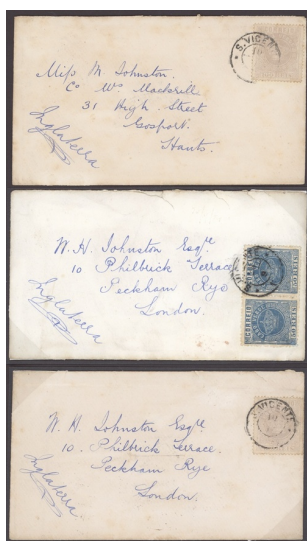 S. VICENTE
Miss M Johnston.
C/o Mrs
31 High Street
Gosport.
Hants.
Inglaterra
W. H. Johnston Esqre
10 Philbrick Terrace
Peckham Rye
London.
Inglaterra
CORREIO
S. VICENTE
W. H. Johnston Esqre
10. Philbrick Terrace.
Peckham Rye
London.
Inglaterra